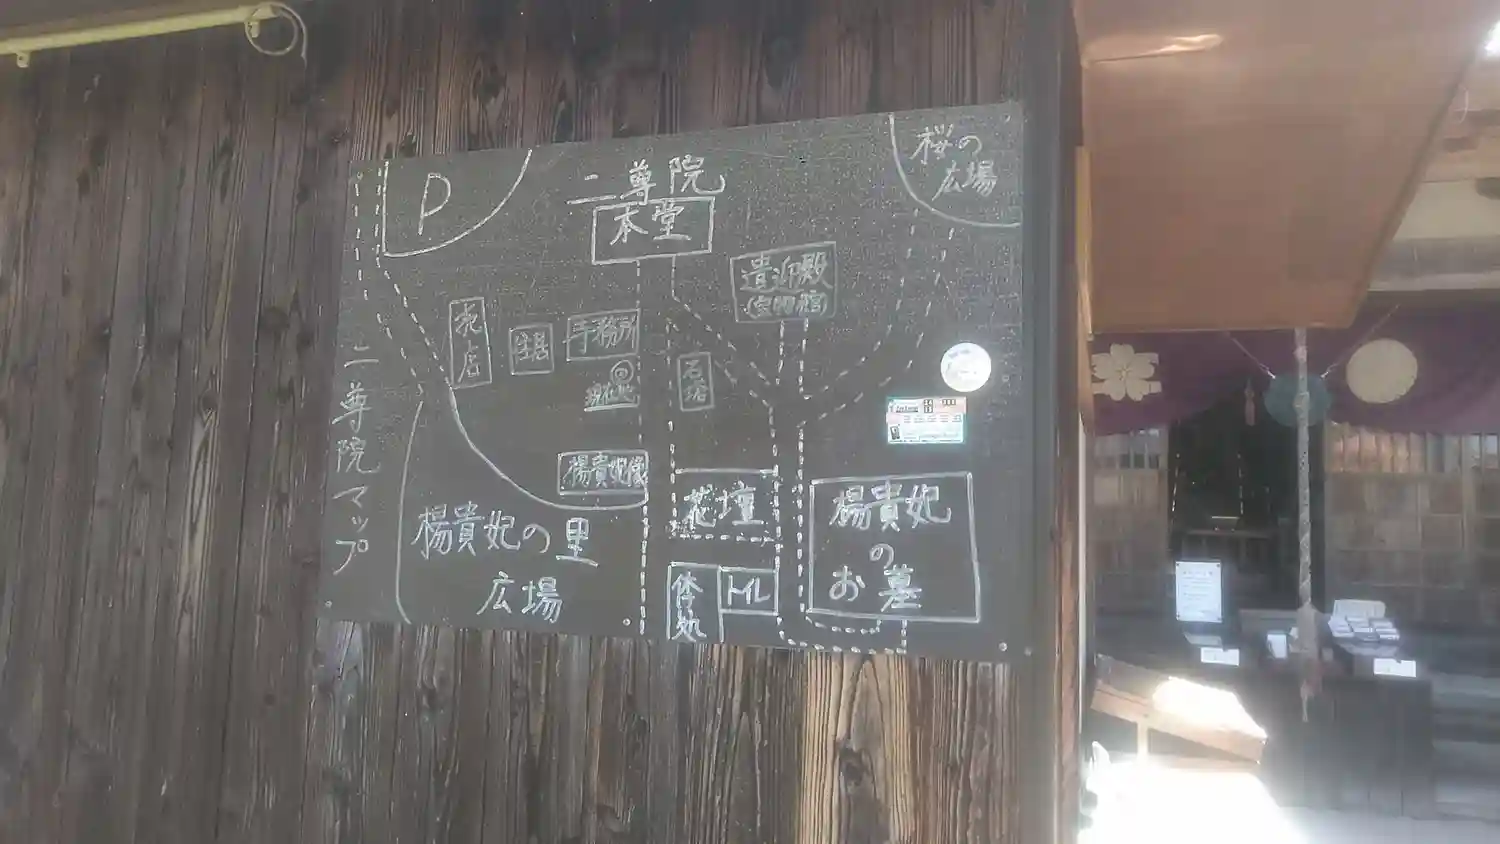 P
二尊院
本堂
桜の
広場
遣迎殿
売店
住居
事務所
現在地
石塔
二尊院マップ
楊貴妃像
花壇
楊貴妃
の
お墓
楊貴妃の里
広場
休処
トイレ